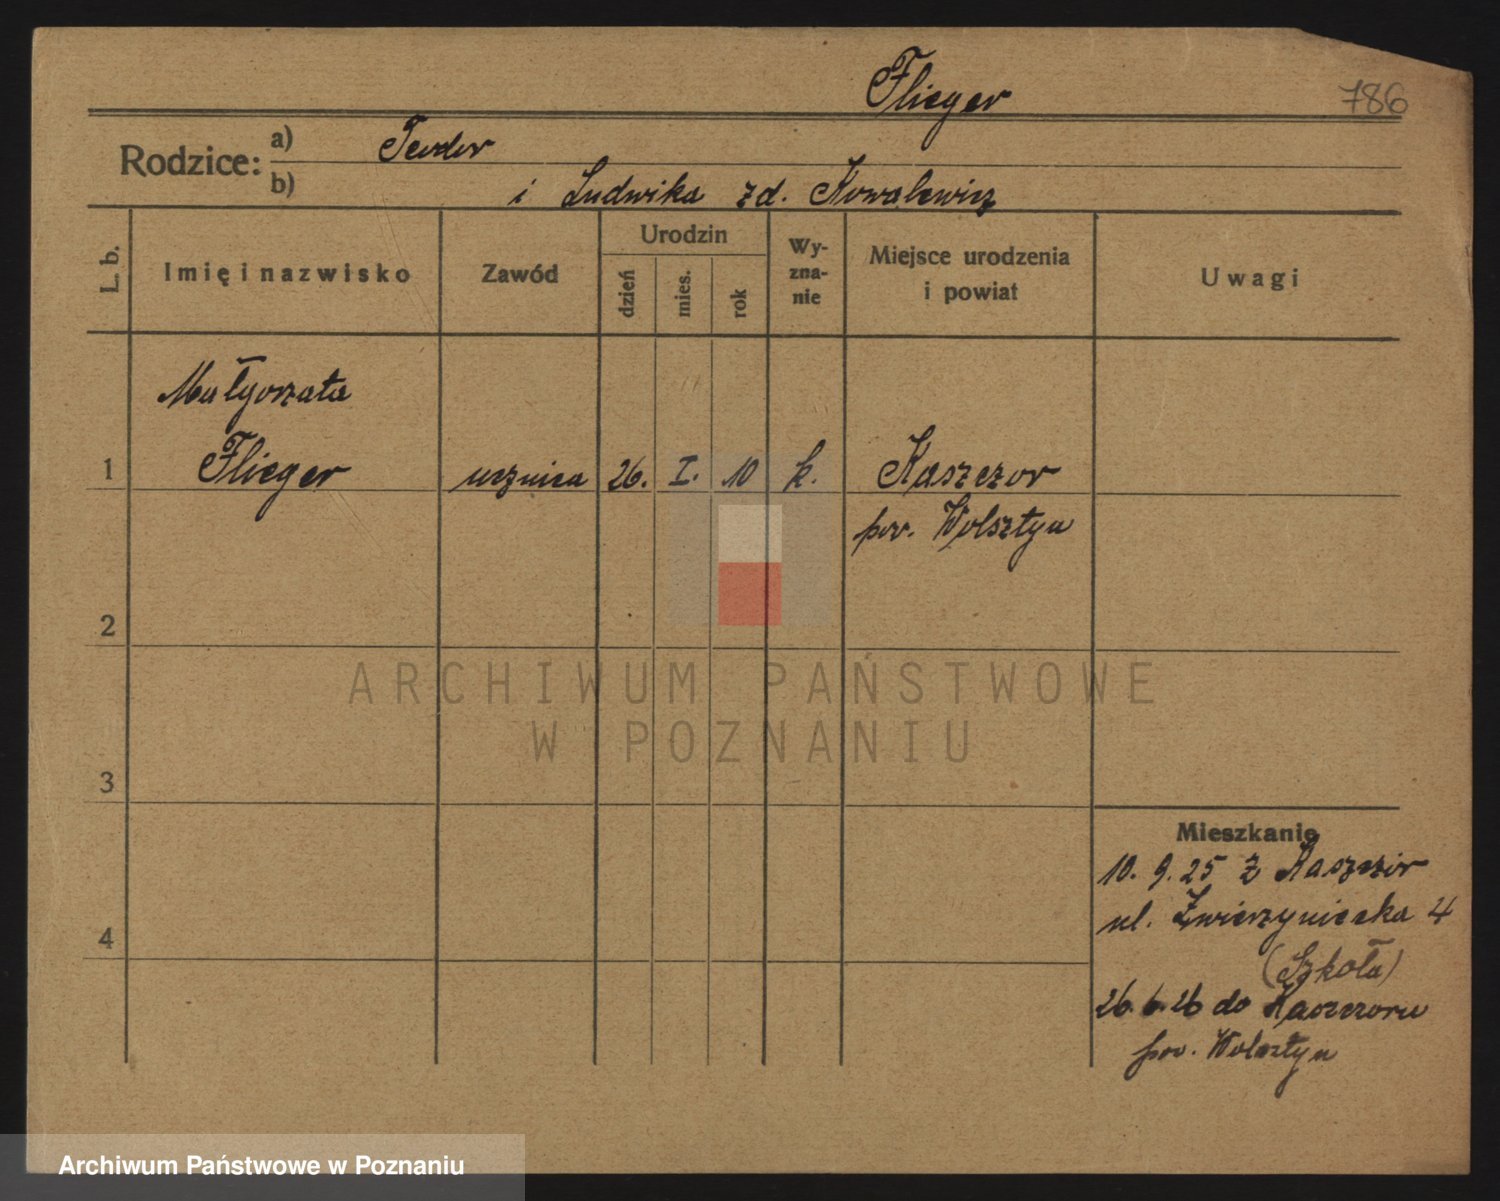 Flieger
786
Rodzice: a) Teodor
b) i Ludwika zd. Kowalewicz
L. b.
Imię i nazwisko
Zawód
Urodzin
dzień
mies.
rok
Wy-
zna-
nie
Miejsce urodzenia
i powiat
Uwagi
Małgorzata
1 Flieger ucznica 26. I. 10 k. Kaszczor
pow. Wolsztyn
2
ARCHIWUM PAŃSTWOWE
W POZNANIU
3
4
Mieszkanie
10. 9. 25 z Kaszczor
ul. Zwierzyniecka 4
(Szkoła)
26. 6. 26 do Kaszczoru
pow. Wolsztyn
Archiwum Państwowe w Poznaniu